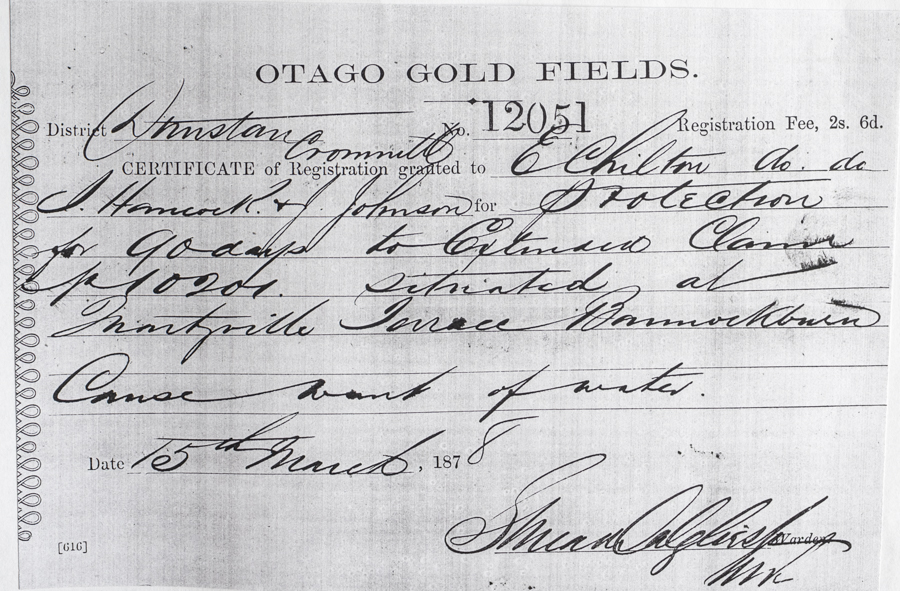 OTAGO GOLD FIELDS.
District Dunstan No. 12051 Registration Fee, 2s. 6d.
Cromwell
CERTIFICATE of Registration granted to E Chilton do. do
J. Hancock. & J. Johnson for Protection
for 90 days to Extended Claim
situated at
Terrace Bannockburn
Cause want of water.
Date 15th March, 1878
Warden
[616]